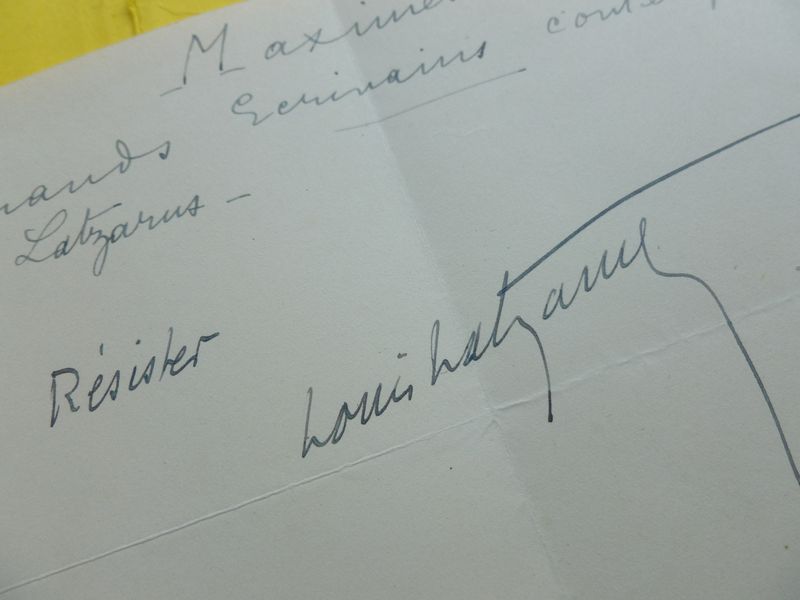 Maximes
Ecrivains conte
mands
Latzarus -
Résister
Louis Latzarus